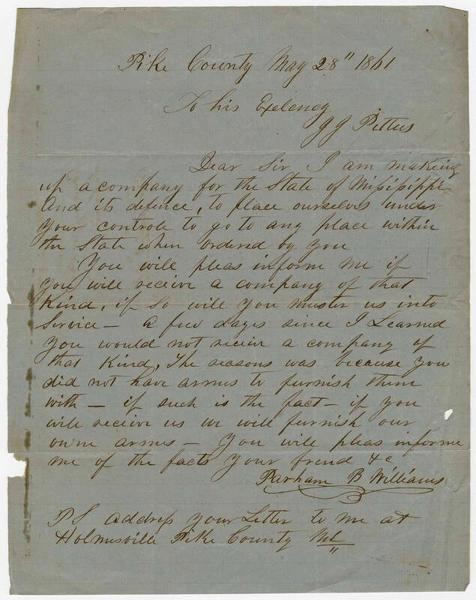 Pike County May 28" 1861
To his Exelency
J J Pettus
Dear Sir I am making
up a company for the State of Missisippi
And its defence, to place ourselves under
Your controle to go to any place within
the State when ordered by you
You will pleas inform me if
you will receive a company of that
Kind, if so will you muster us into
Service — a few days since I Learned
you would not receive a company of
that Kind, The reasons was because you
did not have arms to furnish them
with — if such is the fact — if you
will receive us we will furnish our
own arms — You will pleas informe
me of the facts Your frend &c
Parham B Williams
PS address your Letter to me at
Holmesville Pike County